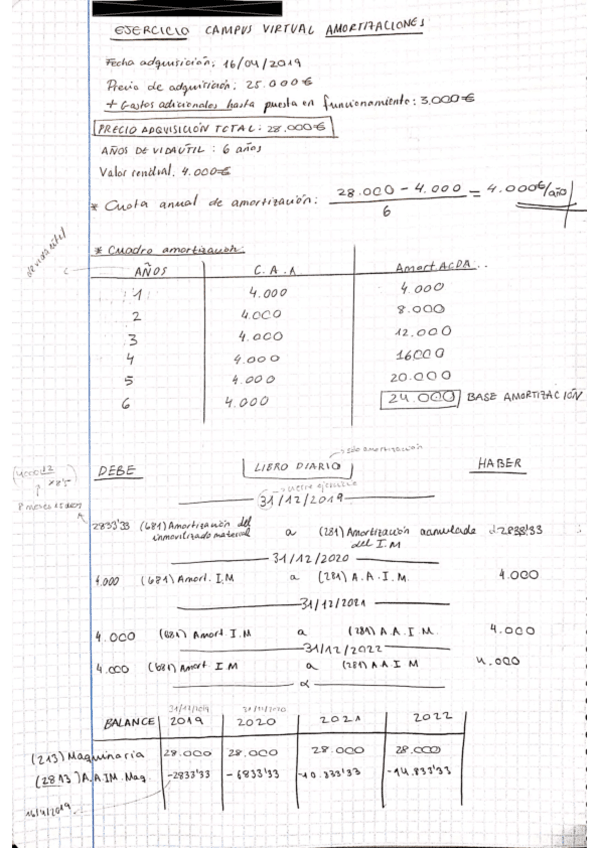 EJERCICIO CAMPUS VIRTUAL AMORTIZACIONES
Fecha adquisición: 16/04/2019
Precio de adquisición: 25.000€
+ Gastos adicionales hasta puesta en funcionamiento: 3.000€
PRECIO ADQUISICIÓN TOTAL: 28.000€
AÑOS DE VIDA ÚTIL : 6 años
Valor residual: 4.000€
* Cuota anual de amortización: 28.000 - 4.000 = 4.000€/año
6
* Cuadro amortización:
de vida útil
AÑOS C.A.A Amort ACDA.
1 4.000 4.000
2 4.000 8.000
3 4.000 12.000
4 4.000 16000
5 4.000 20.000
6 4.000 24.000 BASE AMORTIZACIÓN
→ sólo amortización
DEBE LIBRO DIARIO HABER
→ cierre ejercicio
31/12/2019
8 meses 15 días
2833'33 (681) Amortización del inmovilizado material a (281) Amortización acumulada del I.M 2833'33
31/12/2020
4.000 (681) Amort. I.M a (281) A.A.I.M. 4.000
31/12/2021
4.000 (681) Amort. I.M a (281) A.A I.M. 4.000
31/12/2022
4.000 (681) Amort. I.M a (281) A A I M 4.000
31/12/2019 31/12/2020
BALANCE 2019 2020 2021 2022
(213) Maquinaria 28.000 28.000 28.000 28.000
(2813) A.A.IM. Maq. -2833'33 -6833'33 -10.833'33 -14.833'33
16/4/2019